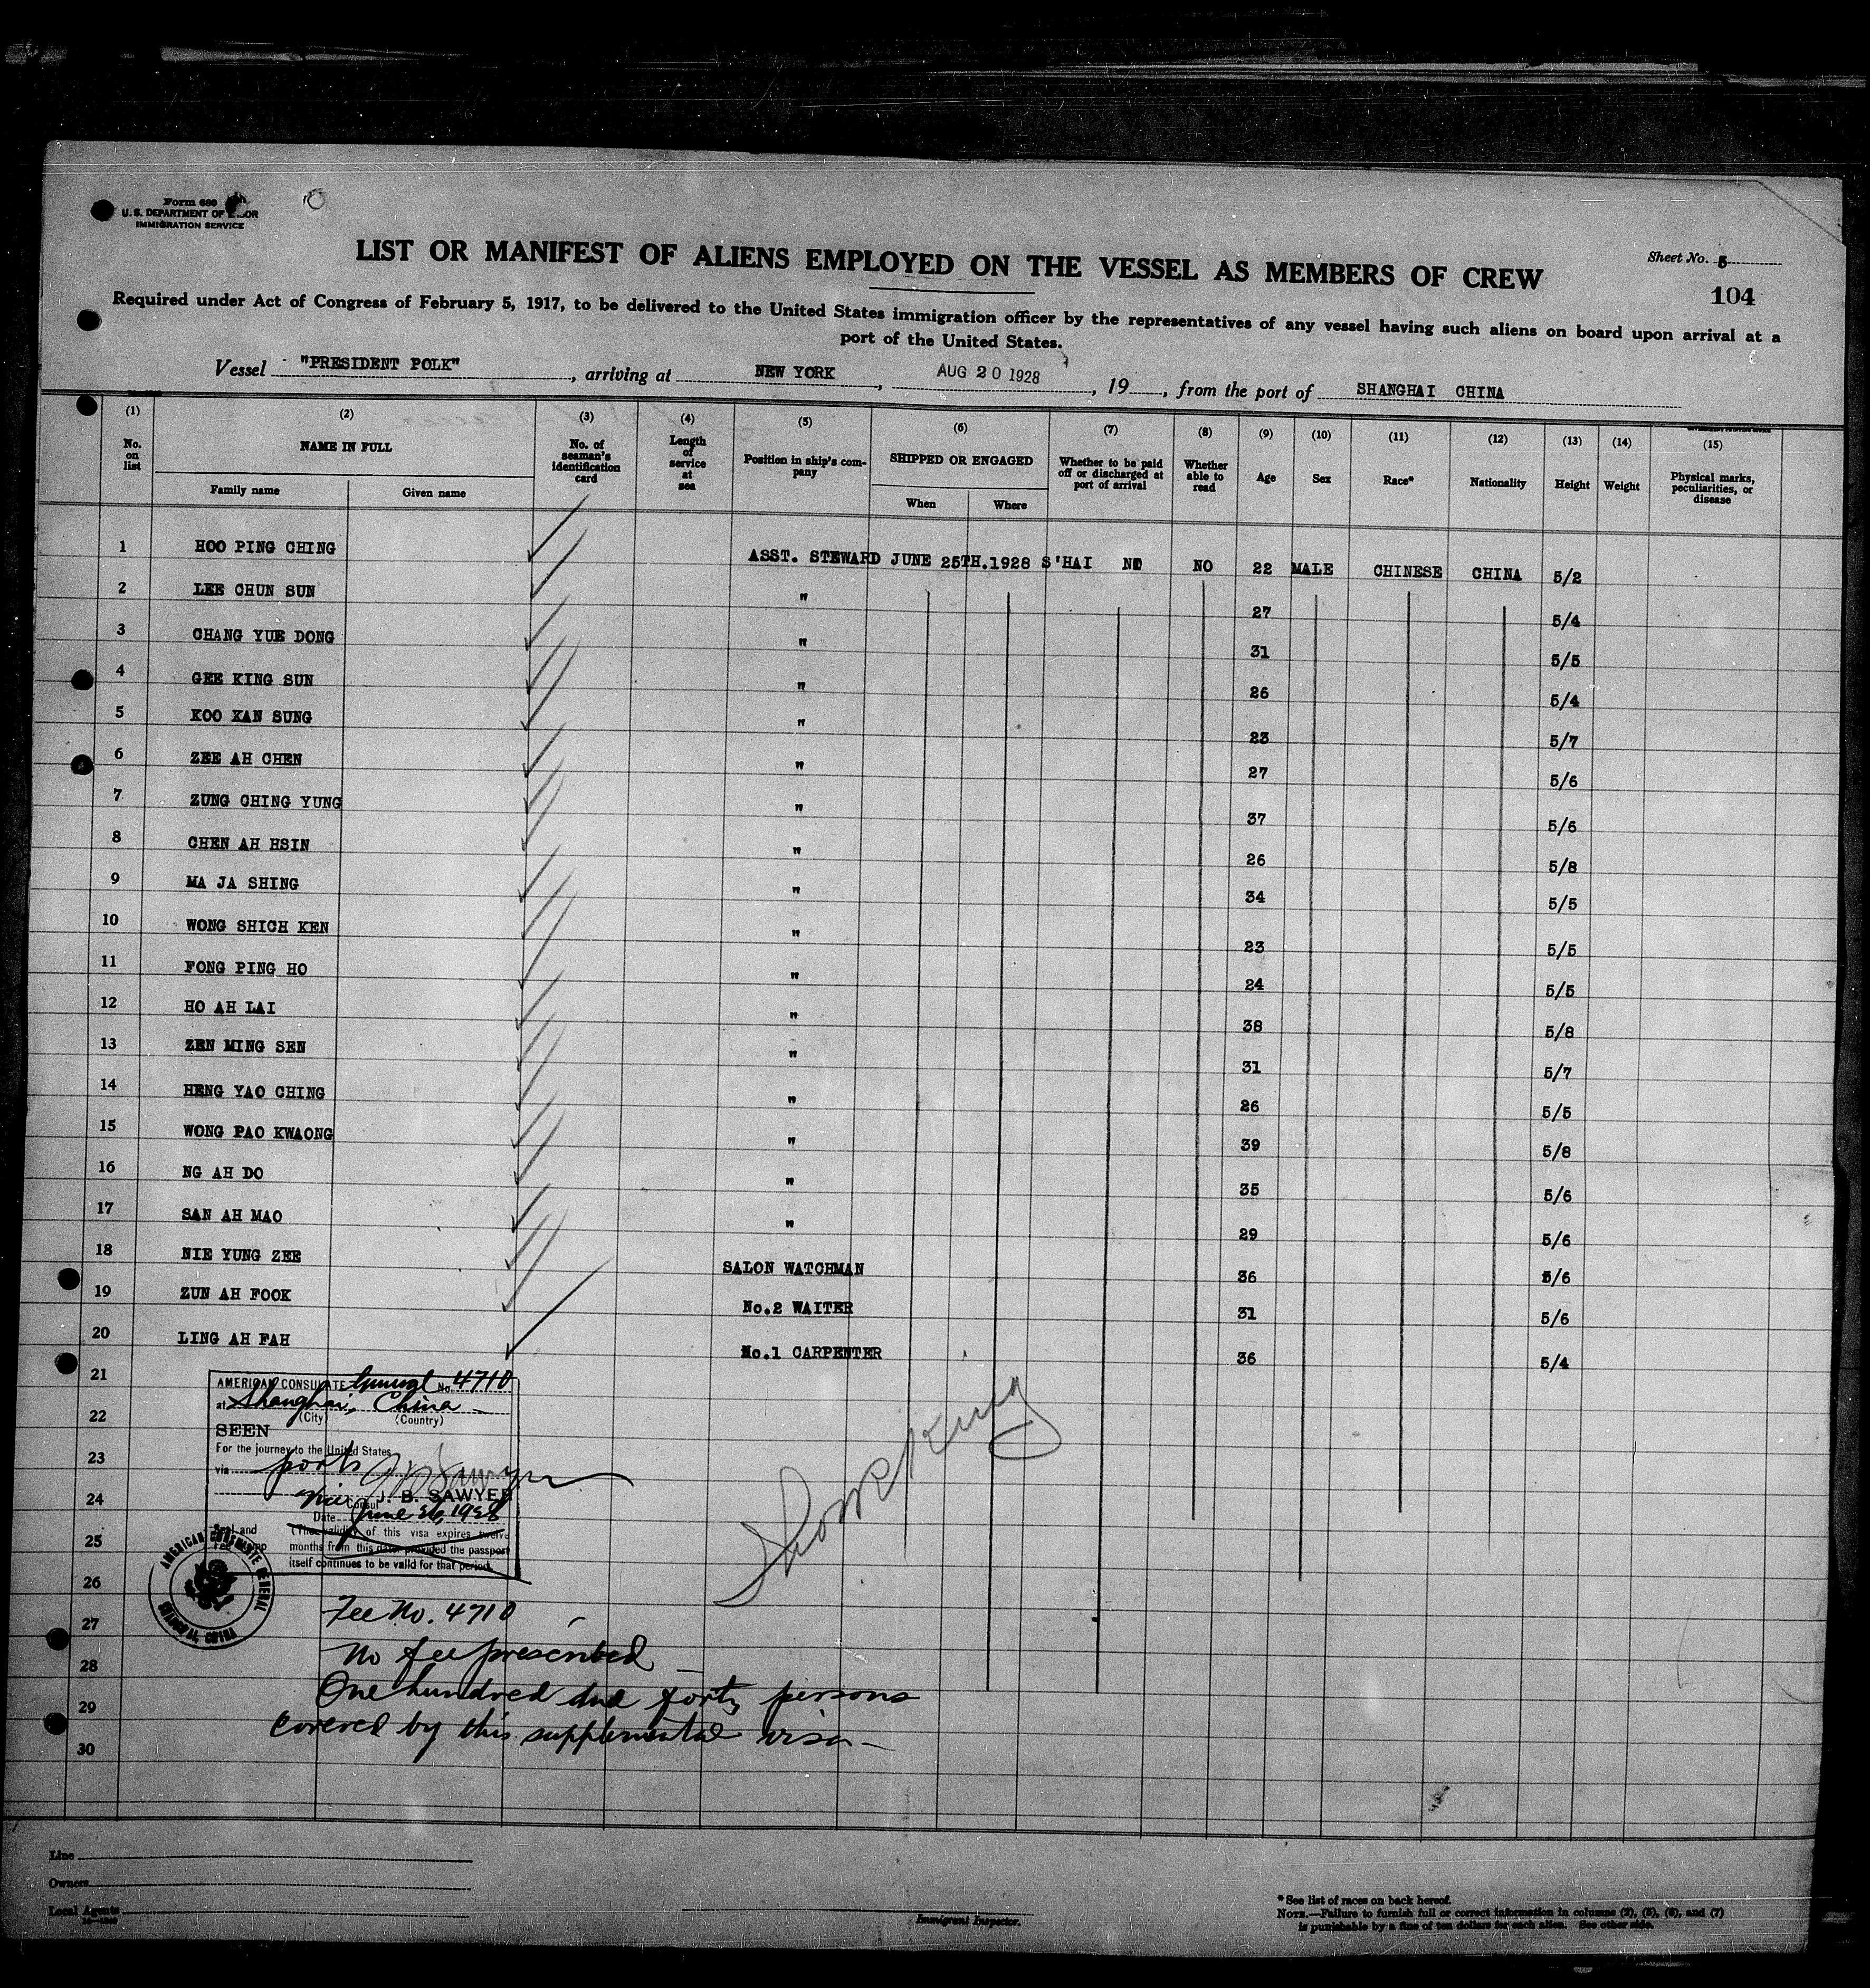 Form 680
U. S. DEPARTMENT OF LABOR
IMMIGRATION SERVICE
LIST OR MANIFEST OF ALIENS EMPLOYED ON THE VESSEL AS MEMBERS OF CREW
Sheet No. 5
104
Required under Act of Congress of February 5, 1917, to be delivered to the United States immigration officer by the representatives of any vessel having such aliens on board upon arrival at a
port of the United States.
Vessel "PRESIDENT POLK", arriving at NEW YORK, AUG 20 1928, 19, from the port of SHANGHAI CHINA
(1) (2) (3) (4) (5) (6) (7) (8) (9) (10) (11) (12) (13) (14) (15)
No. on list NAME IN FULL No. of seaman's identification card Length of service at sea Position in ship's company SHIPPED OR ENGAGED Whether to be paid off or discharged at port of arrival Whether able to read Age Sex Race* Nationality Height Weight Physical marks, peculiarities, or disease
Family name Given name When Where
1 HOO PING CHING ASST. STEWARD JUNE 25TH.1928 S'HAI NO NO 22 MALE CHINESE CHINA 5/2
2 LEE CHUN SUN " 27 5/4
3 CHANG YUE DONG " 31 5/5
4 GEE KING SUN " 26 5/4
5 KOO KAN SUNG " 23 5/7
6 ZEE AH CHEN " 27 5/6
7 ZUNG CHING YUNG " 37 5/6
8 CHEN AH HSIN " 26 5/8
9 MA JA SHING " 34 5/5
10 WONG SHICH KEN " 23 5/5
11 FONG PING HO " 24 5/5
12 HO AH LAI " 38 5/8
13 ZEN MING SEN " 31 5/7
14 HENG YAO CHING " 26 5/5
15 WONG PAO KWAONG " 39 5/8
16 NG AH DO " 35 5/6
17 SAN AH MAO " 29 5/6
18 NIE YUNG ZEE SALON WATCHMAN 36 5/6
19 ZUN AH FOOK No.2 WAITER 31 5/6
20 LING AH FAH No.1 CARPENTER 36 5/4
21
22
23
24
25
26
27
28
29
30
AMERICAN CONSULATE General No. 4710
at Shanghai, China
(City) (Country)
SEEN
For the journey to the United States
via ports
Vice Consul J. B. SAWYER
Date June 26, 1928
(The validity of this visa expires twelve
months from this date provided the passport
itself continues to be valid for that period.
AMERICAN CONSULATE GENERAL
SHANGHAI, CHINA
Fee No. 4710
No fee prescribed
One hundred and forty persons
covered by this supplemental visa
Line
Owners
Local Agents
Immigrant Inspector.
* See list of races on back hereof.
NOTE.—Failure to furnish full or correct information in columns (2), (5), (6), and (7)
is punishable by a fine of ten dollars for each alien. See other side.